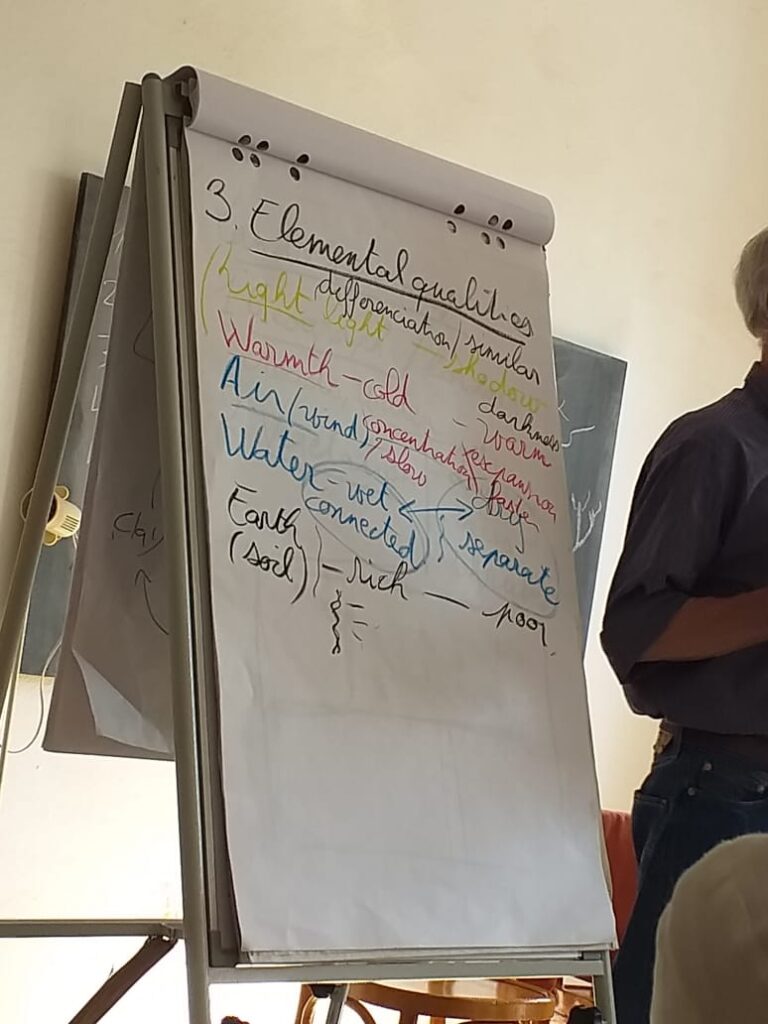 3. Elemental qualities
differenciation/similar
(Light light - shadow
darkness
Warmth - cold - warm
concentration / expansion
/ slow faster
Air (wind)
Water - wet - dry
connected separate
Earth
(soil) - rich - poor
Clay